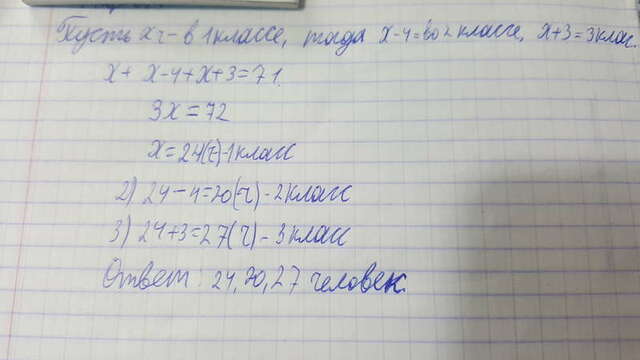 Пусть х ч - в 1 классе, тогда х-4=во 2 классе, х+3=3 клас.
х+ х-4+х+3=71.
3х=72
х=24(ч)-1класс
2) 24-4=20(ч)-2класс
3) 24+3=27(ч)-3класс
Ответ: 24,20,27 человек.